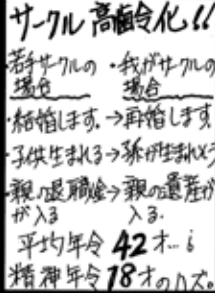 サークル高齢化!!
・若手サークルの場合 ・我がサークルの場合
・結婚します。→再婚します。
・子供生まれる→孫が生まれそう
・親の退職金が入る→親の遺産が入る。
平均年令42才…
精神年令18才のハズ。